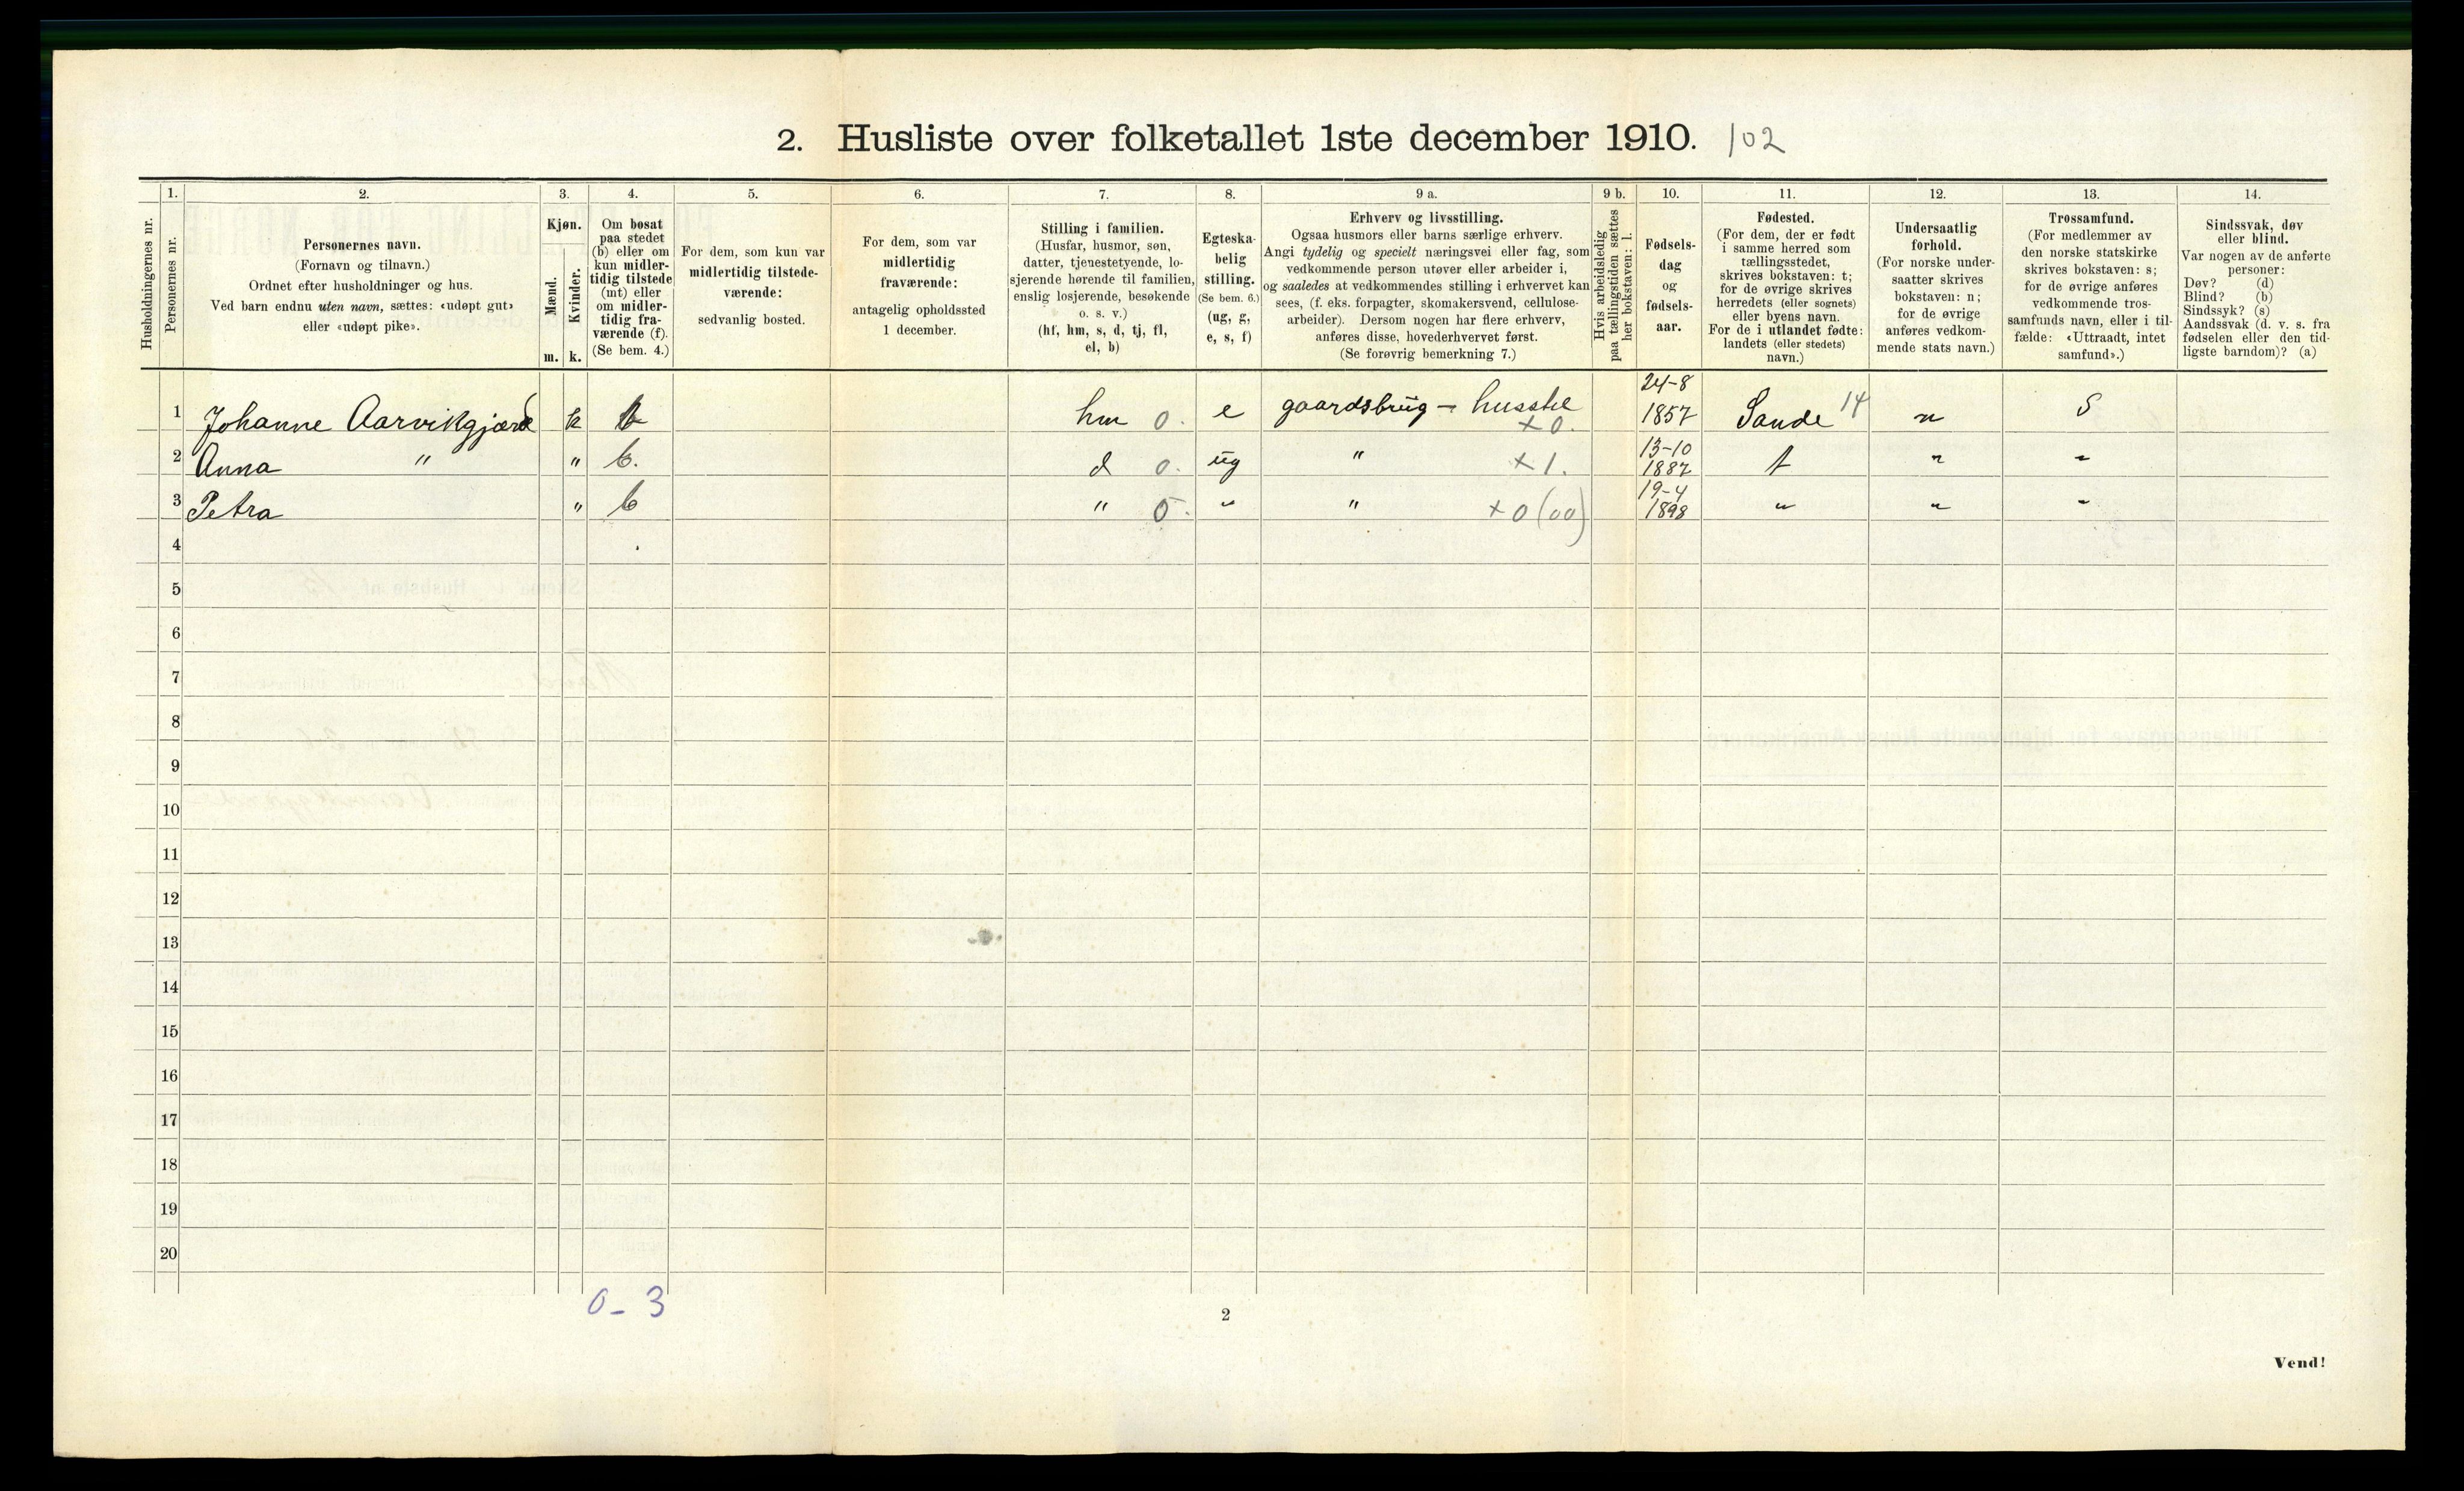 2. Husliste over folketallet 1ste december 1910. 102
1. 2. 3. 4. 5. 6. 7. 8. 9 a. 9 b. 10. 11. 12. 13. 14.
Husholdningernes nr.
Personernes nr.
Personernes navn.
(Fornavn og tilnavn.)
Ordnet efter husholdninger og hus.
Ved barn endnu uten navn, sættes: «udøpt gut»
eller «udøpt pike».
Kjøn.
Mænd.
Kvinder.
m. k.
Om bosat
paa stedet
(b) eller om
kun midler-
tidig tilstede
(mt) eller
om midler-
tidig fra-
værende (f).
(Se bem. 4.)
For dem, som kun var
midlertidig tilstede-
værende:
sedvanlig bosted.
For dem, som var
midlertidig
fraværende:
antagelig opholdssted
1 december.
Stilling i familien.
(Husfar, husmor, søn,
datter, tjenestetyende, lo-
sjerende hørende til familien,
enslig losjerende, besøkende
o. s. v.)
(hf, hm, s, d, tj, fl,
el, b)
Egteska-
belig
stilling.
(Se bem. 6.)
(ug, g,
e, s, f)
Erhverv og livsstilling.
Ogsaa husmors eller barns særlige erhverv.
Angi tydelig og specielt næringsvei eller fag, som
vedkommende person utøver eller arbeider i,
og saaledes at vedkommendes stilling i erhvervet kan
sees, (f. eks. forpagter, skomakersvend, cellulose-
arbeider). Dersom nogen har flere erhverv,
anføres disse, hovederhvervet først.
(Se forøvrig bemerkning 7.)
Hvis arbeidsledig
paa tællingstiden sættes
her bokstaven: l.
Fødsels-
dag
og
fødsels-
aar.
Fødested.
(For dem, der er født
i samme herred som
tællingsstedet,
skrives bokstaven: t;
for de øvrige skrives
herredets (eller sognets)
eller byens navn.
For de i utlandet fødte:
landets (eller stedets)
navn.)
Undersaatlig
forhold.
(For norske under-
saatter skrives
bokstaven: n;
for de øvrige
anføres vedkom-
mende stats navn.)
Trossamfund.
(For medlemmer av
den norske statskirke
skrives bokstaven: s;
for de øvrige anføres
vedkommende tros-
samfunds navn, eller i til-
fælde: «Uttraadt, intet
samfund».)
Sindssvak, døv
eller blind.
Var nogen av de anførte
personer:
Døv? (d)
Blind? (b)
Sindssyk? (s)
Aandssvak (d. v. s. fra
fødselen eller den tid-
ligste barndom)? (a)
1 Johanne Aarvikgjærde k b hm 0. e gaardsbrug - husstel +0. 24-8 1857 Sande 14 n S
2 Anna " " b. d 0. ug " +1. 13-10 1887 t " "
3 Petra " b " 0. " " +0 (00) 19-4 1898 " " "
4
5
6
7
8
9
10
11
12
13
14
15
16
17
18
19
20
0 - 3
2
Vend!